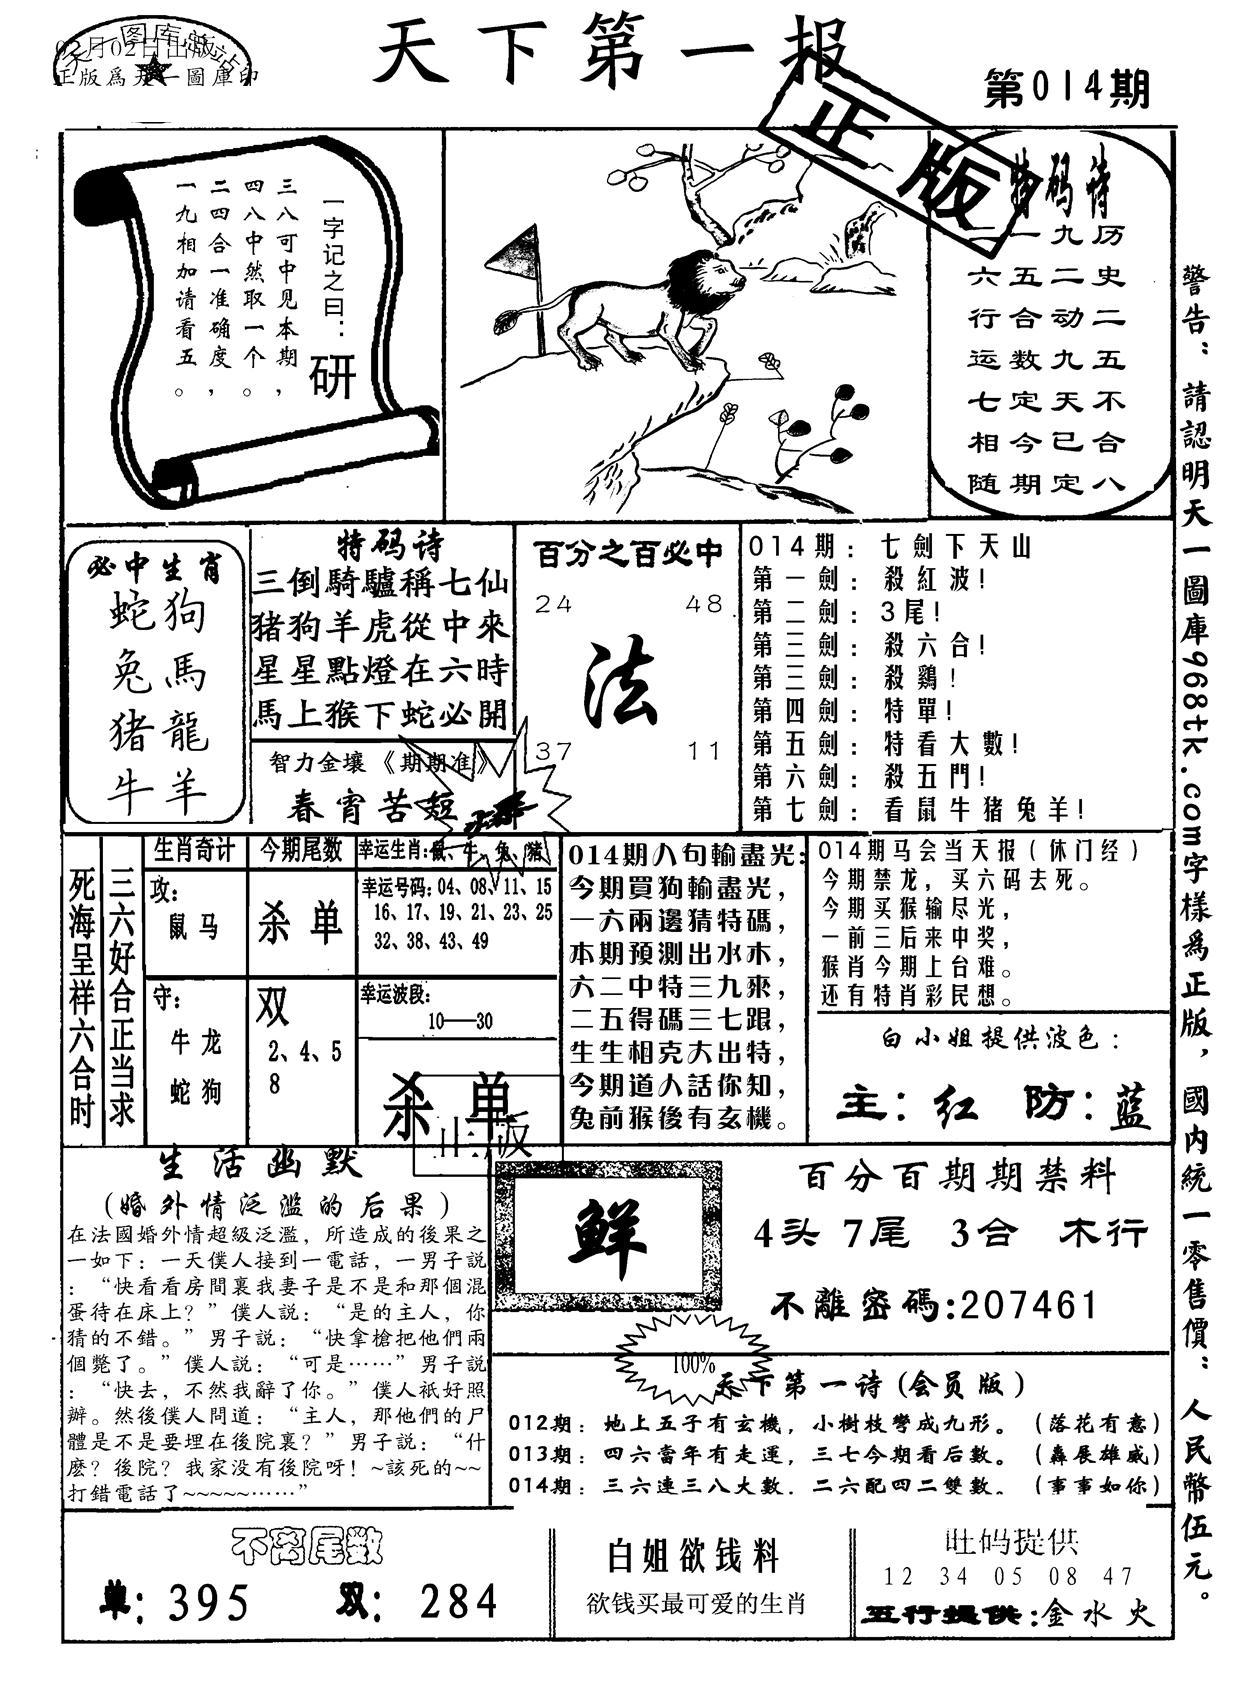 天下第一报
第014期
02月02日出版
正版
一字记之曰：研
三八可中见本期，
四八中然取一个。
二四合一准确度，
一九相加请看五。
特码诗
历史二五不合八
九二动九天已定
一五合数定今期
二六行运七相随
警告：請認明天一圖庫968tk.com字樣為正版，國内統一零售價：人民幣伍元。
必中生肖
蛇狗
兔馬
猪龍
牛羊
特码诗
三倒騎驢稱七仙
猪狗羊虎從中來
星星點燈在六時
馬上猴下蛇必開
智力金壤《期期准》
春宵苦短
百分之百必中
24 48
法
37 11
014期：七劍下天山
第一劍：殺紅波！
第二劍：3尾！
第三劍：殺六合！
第三劍：殺鷄！
第四劍：特單！
第五劍：特看大數！
第六劍：殺五門！
第七劍：看鼠牛猪兔羊！
死海呈祥六合时
三六好合正当求
生肖奇计
攻：
鼠马
守：
牛龙
蛇狗
今期尾数
杀单
双
2、4、5
8
幸运生肖：鼠、牛、兔、猪
幸运号码：04、08、11、15
16、17、19、21、23、25
32、38、43、49
幸运波段：
10——30
杀单
正版
014期八句輸盡光：
今期買狗輸盡光，
一六兩邊猜特碼，
本期預測出水木，
六二中特三九來，
二五得碼三七跟，
生生相克大出特，
今期道人話你知，
兔前猴後有玄機。
014期马会当天报（休门经）
今期禁龙，买六码去死。
今期买猴输尽光，
一前三后来中奖，
猴肖今期上台难。
还有特肖彩民想。
白小姐提供波色：
主：红 防：蓝
生活幽默
（婚外情泛滥的后果）
在法國婚外情超級泛濫，所造成的後果之
一如下：一天僕人接到一電話，一男子説
：“快看看房間裏我妻子是不是和那個混
蛋待在床上？”僕人説：“是的主人，你
猜的不錯。”男子説：“快拿槍把他們兩
個斃了。”僕人説：“可是……”男子説
：“快去，不然我辭了你。”僕人衹好照
辦。然後僕人問道：“主人，那他們的尸
體是不是要埋在後院裏？”男子説：“什
麽？後院？我家没有後院呀！~該死的~~
打錯電話了~~~~~……”
鲜
百分百期期禁料
4头 7尾 3合 木行
不離密碼:207461
100%
天下第一诗(会员版)
012期：地上五子有玄機，小樹枝彎成九形。（落花有意）
013期：四六當年有走運，三七今期看后數。（轟展雄威）
014期：三六連三八大數，二六配四二雙數。（事事如你）
不离尾数
单：395 双：284
白姐欲钱料
欲钱买最可爱的生肖
旺码提供
12 34 05 08 47
五行提供：金水火